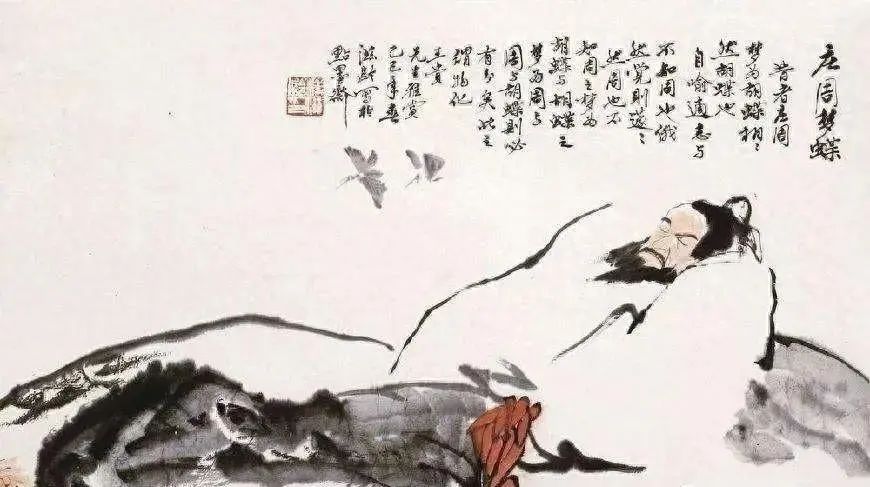 庄周梦蝶
昔者庄周
梦为胡蝶栩〻
然胡蝶也
自喻适志与
不知周也俄
然觉则蘧〻
然周也不
知周之梦为
胡蝶与胡蝶之
梦为周与
周与胡蝶则必
有分矣此之
谓物化
先生雅赏
己巳年春
写于
点墨斋